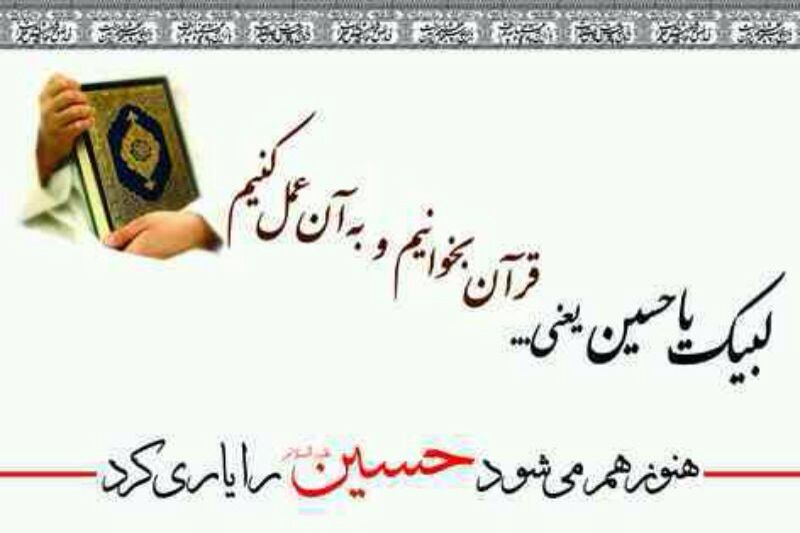 لبیک یا حسین یعنی...
قرآن بخوانیم و به آن عمل کنیم
هنوز هم می شود حسین علیه السلام را یاری کرد